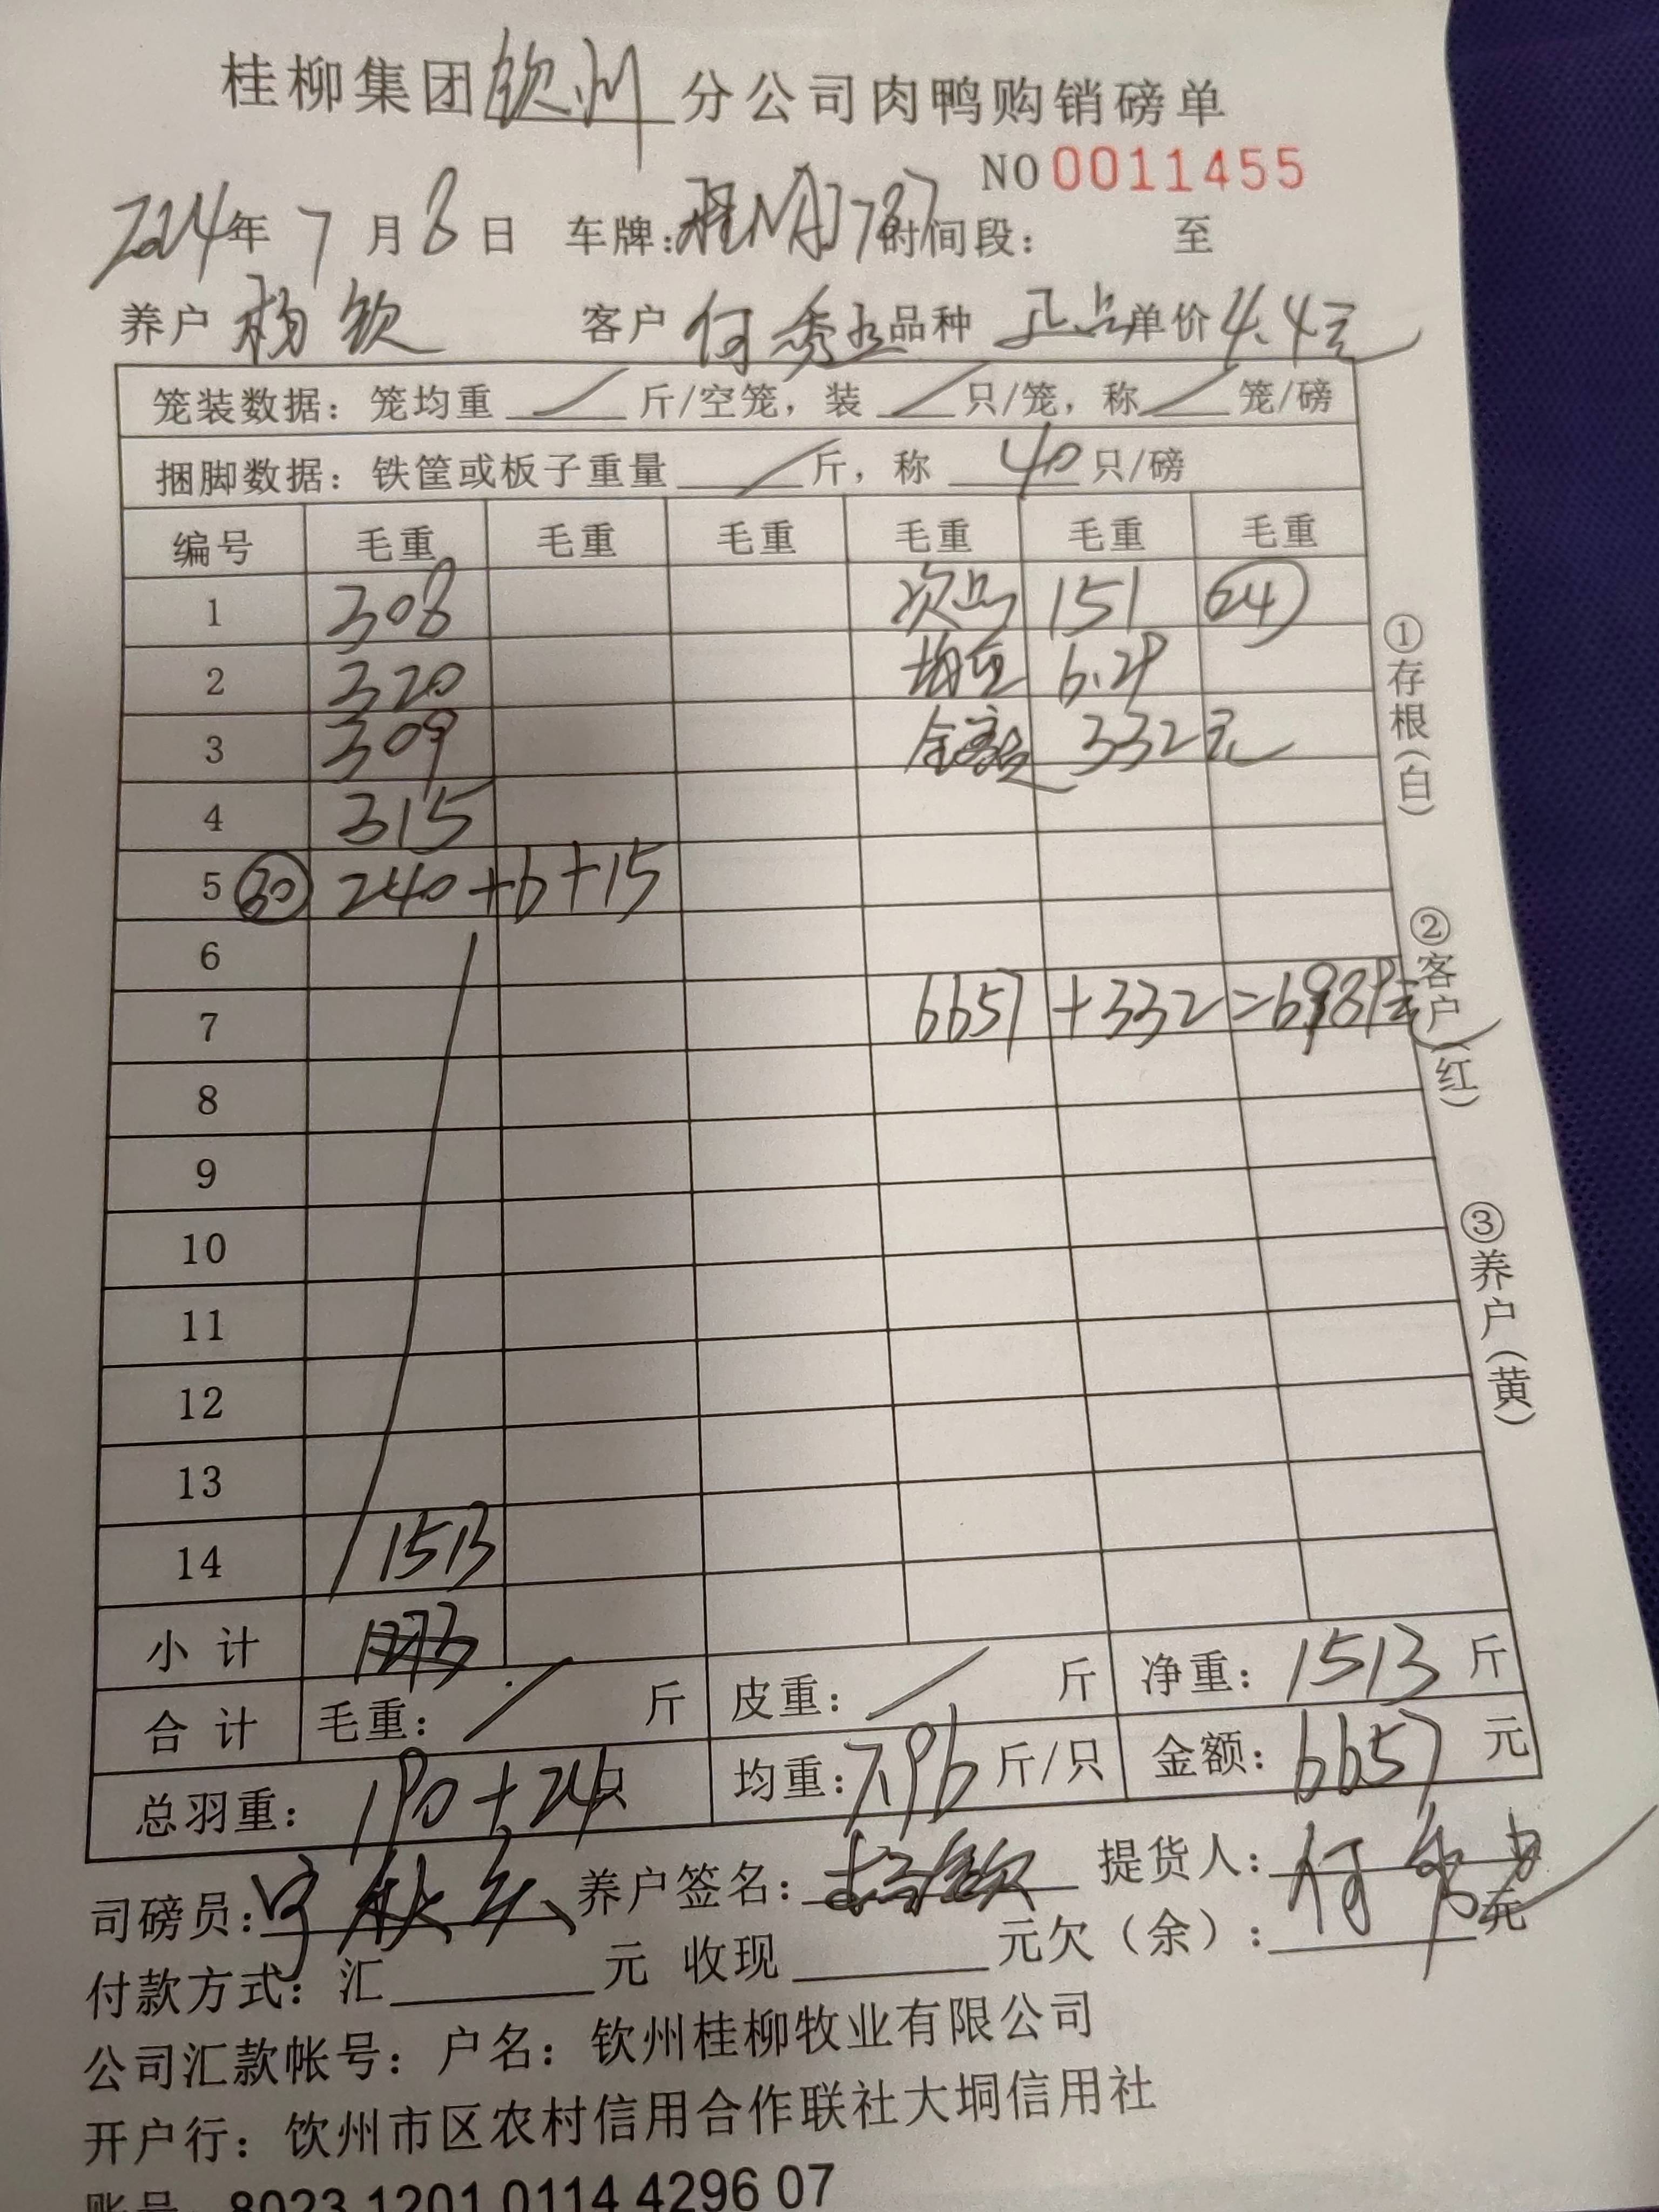 桂柳集团钦州分公司肉鸭购销磅单
NO 0011455
2024年 7 月 8 日 车牌: 时间段: 至
养户 杨钦 客户 何秀 品种 正品 单价 4.4元
笼装数据: 笼均重 / 斤/空笼, 装 / 只/笼, 称 / 笼/磅
捆脚数据: 铁筐或板子重量 / 斤, 称 40 只/磅
编号 毛重 毛重 毛重 毛重 毛重 毛重
1 308 次品 151 24
2 320 均重 6.29
3 309 金额 332元
4 315
5 30 240+6+15
6
7 6657+332=6989元
8
9
10
11
12
13
14 1513
小计
合计 毛重: / 斤 皮重: / 斤 净重: 1513 斤
总羽重: 190+24只 均重: 7.96 斤/只 金额: 6657 元
司磅员: 养户签名: 杨钦 提货人: 何秀
付款方式: 汇 元 收现 元欠(余): 元
公司汇款帐号: 户名: 钦州桂柳牧业有限公司
开户行: 饮州市区农村信用合作联社大垌信用社
账号: 8023 1201 0114 4296 07
①存根(白)
②客户(红)
③养户(黄)